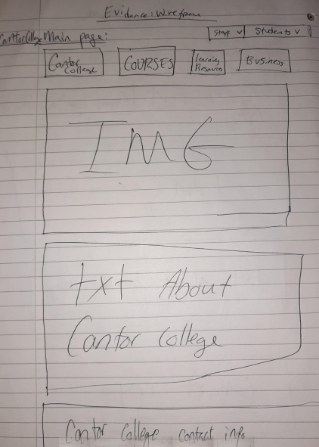 Evidence: Wireframe
Main page:
Staff v Students v
Cantor College
COURSES
Learning Resources
Business
IMG
txt About
Cantor College
Cantor College contact info